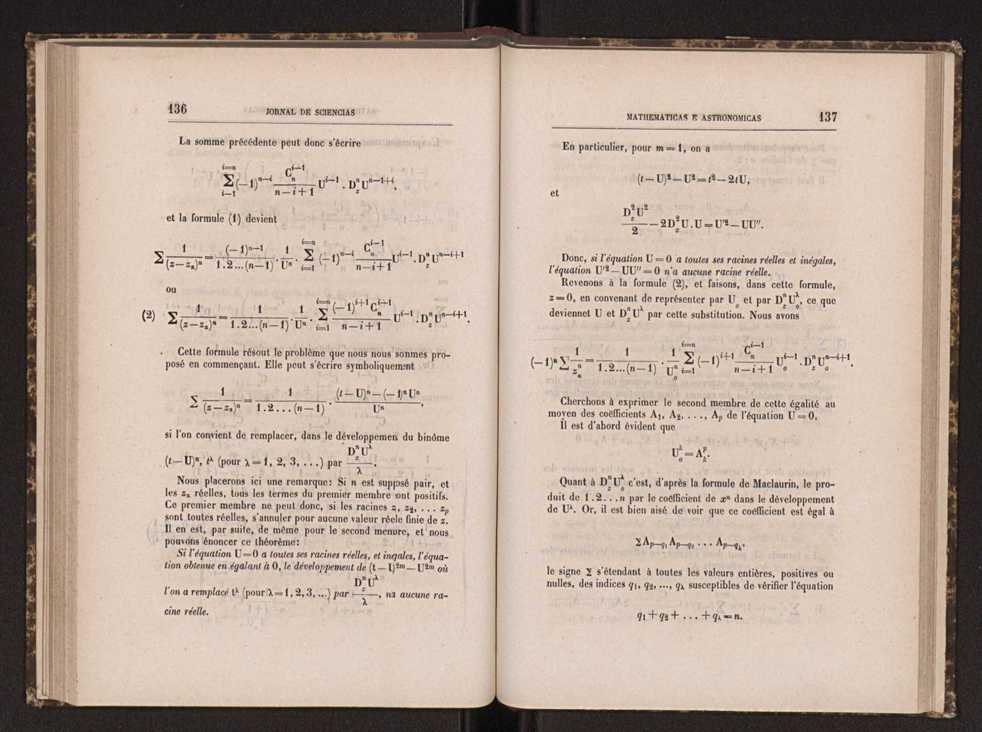 136 JORNAL DE SCIENCIAS
La somme précédente peut donc s'écrire
\sum_{i=1}^{i=n} (-1)^{n-i} \frac{C_n^{i-1}}{n-i+1} U^{i-1} . D_z^n U^{n-1+i},
et la formule (1) devient
\sum \frac{1}{(z-z_n)^n} = \frac{(-1)^{n-1}}{1.2...(n-1)} . \frac{1}{U^n} . \sum_{i=1}^{i=n} (-1)^{n-i} \frac{C_n^{i-1}}{n-i+1} U^{i-1} . D_z^n U^{n-i+1}
ou
(2) \sum \frac{1}{(z-z_n)^n} = \frac{1}{1.2...(n-1)} . \frac{1}{U^n} . \sum_{i=1}^{i=n} \frac{(-1)^{i+1} C_n^{i-1}}{n-i+1} U^{i-1} . D_z^n U^{n-i+1}.
Cette formule résout le problème que nous nous sommes pro-
posé en commençant. Elle peut s'écrire symboliquement
\sum \frac{1}{(z-z_n)^n} = \frac{1}{1.2...(n-1)} . \frac{(t-U)^n-(-1)^n U^n}{U^n}.
si l'on convient de remplacer, dans le développemen du binôme
(t-U)^n, t^λ (pour λ=1, 2, 3, ...) par \frac{D_z^n U^λ}{λ}.
Nous placerons ici une remarque: Si n est supposé pair, et
les z_n réelles, tous les termes du premier membre ont positifs.
Ce premier membre ne peut donc, si les racines z, z_2, ... z_p
sont toutes réelles, s'annuler pour aucune valeur réele finie de z.
Il en est, par suite, de même pour le second menure, et nous
pouvons énoncer ce théorème:
Si l'équation U=0 a toutes ses racines réelles, et ingales, l'équa-
tion obtenue en égalant à 0, le développement de (t-U)^{2m}-U^{2m} où
l'on a remplacé t^λ (pour λ=1, 2, 3, ...) par \frac{D_z^n U^λ}{λ}, na aucune ra-
cine réelle.
MATHEMATICAS E ASTRONOMICAS 137
En particulier, pour m=1, on a
(t-U)^2-U^2=t^2-2tU,
et
\frac{D_z^2 U^2}{2}-2D_z^2 U.U=U'^2-UU''.
Donc, si l'équation U=0 a toutes ses racines réelles et inégales,
l'équation U'^2-UU''=0 n'a aucune racine réelle.
Revenons à la formule (2), et faisons, dans cette formule,
z=0, en convenant de représenter par U_o et par D_z^n U_o^λ, ce que
deviennet U et D_z^n U^λ par cette substitution. Nous avons
(-1)^n \sum \frac{1}{z_n^n} = \frac{1}{1.2...(n-1)} . \frac{1}{U_o^n} \sum_{i=1}^{i=n} (-1)^{i+1} \frac{C_n^{i-1}}{n-i+1} U_o^{i-1} . D_z^n U_o^{n-i+1}.
Cherchons à exprimer le second membre de cette égalité au
moyen des coëfficients A_1, A_2, ..., A_p de l'équation U=0.
Il est d'abord évident que
U_o^λ=A_λ^p.
Quant à D_z^n U_o^λ c'est, d'après la formule de Maclaurin, le pro-
duit de 1.2...n par le coëfficient de x^n dans le développement
de U^λ. Or, il est bien aisé de voir que ce coëfficient est égal à
ΣA_{p-q_1} A_{p-q_2} ... A_{p-q_λ},
le signe Σ s'étendant à toutes les valeurs entières, positives ou
nulles, des indices q_1, q_2, ..., q_λ susceptibles de vérifier l'équation
q_1+q_2+...+q_λ=n.